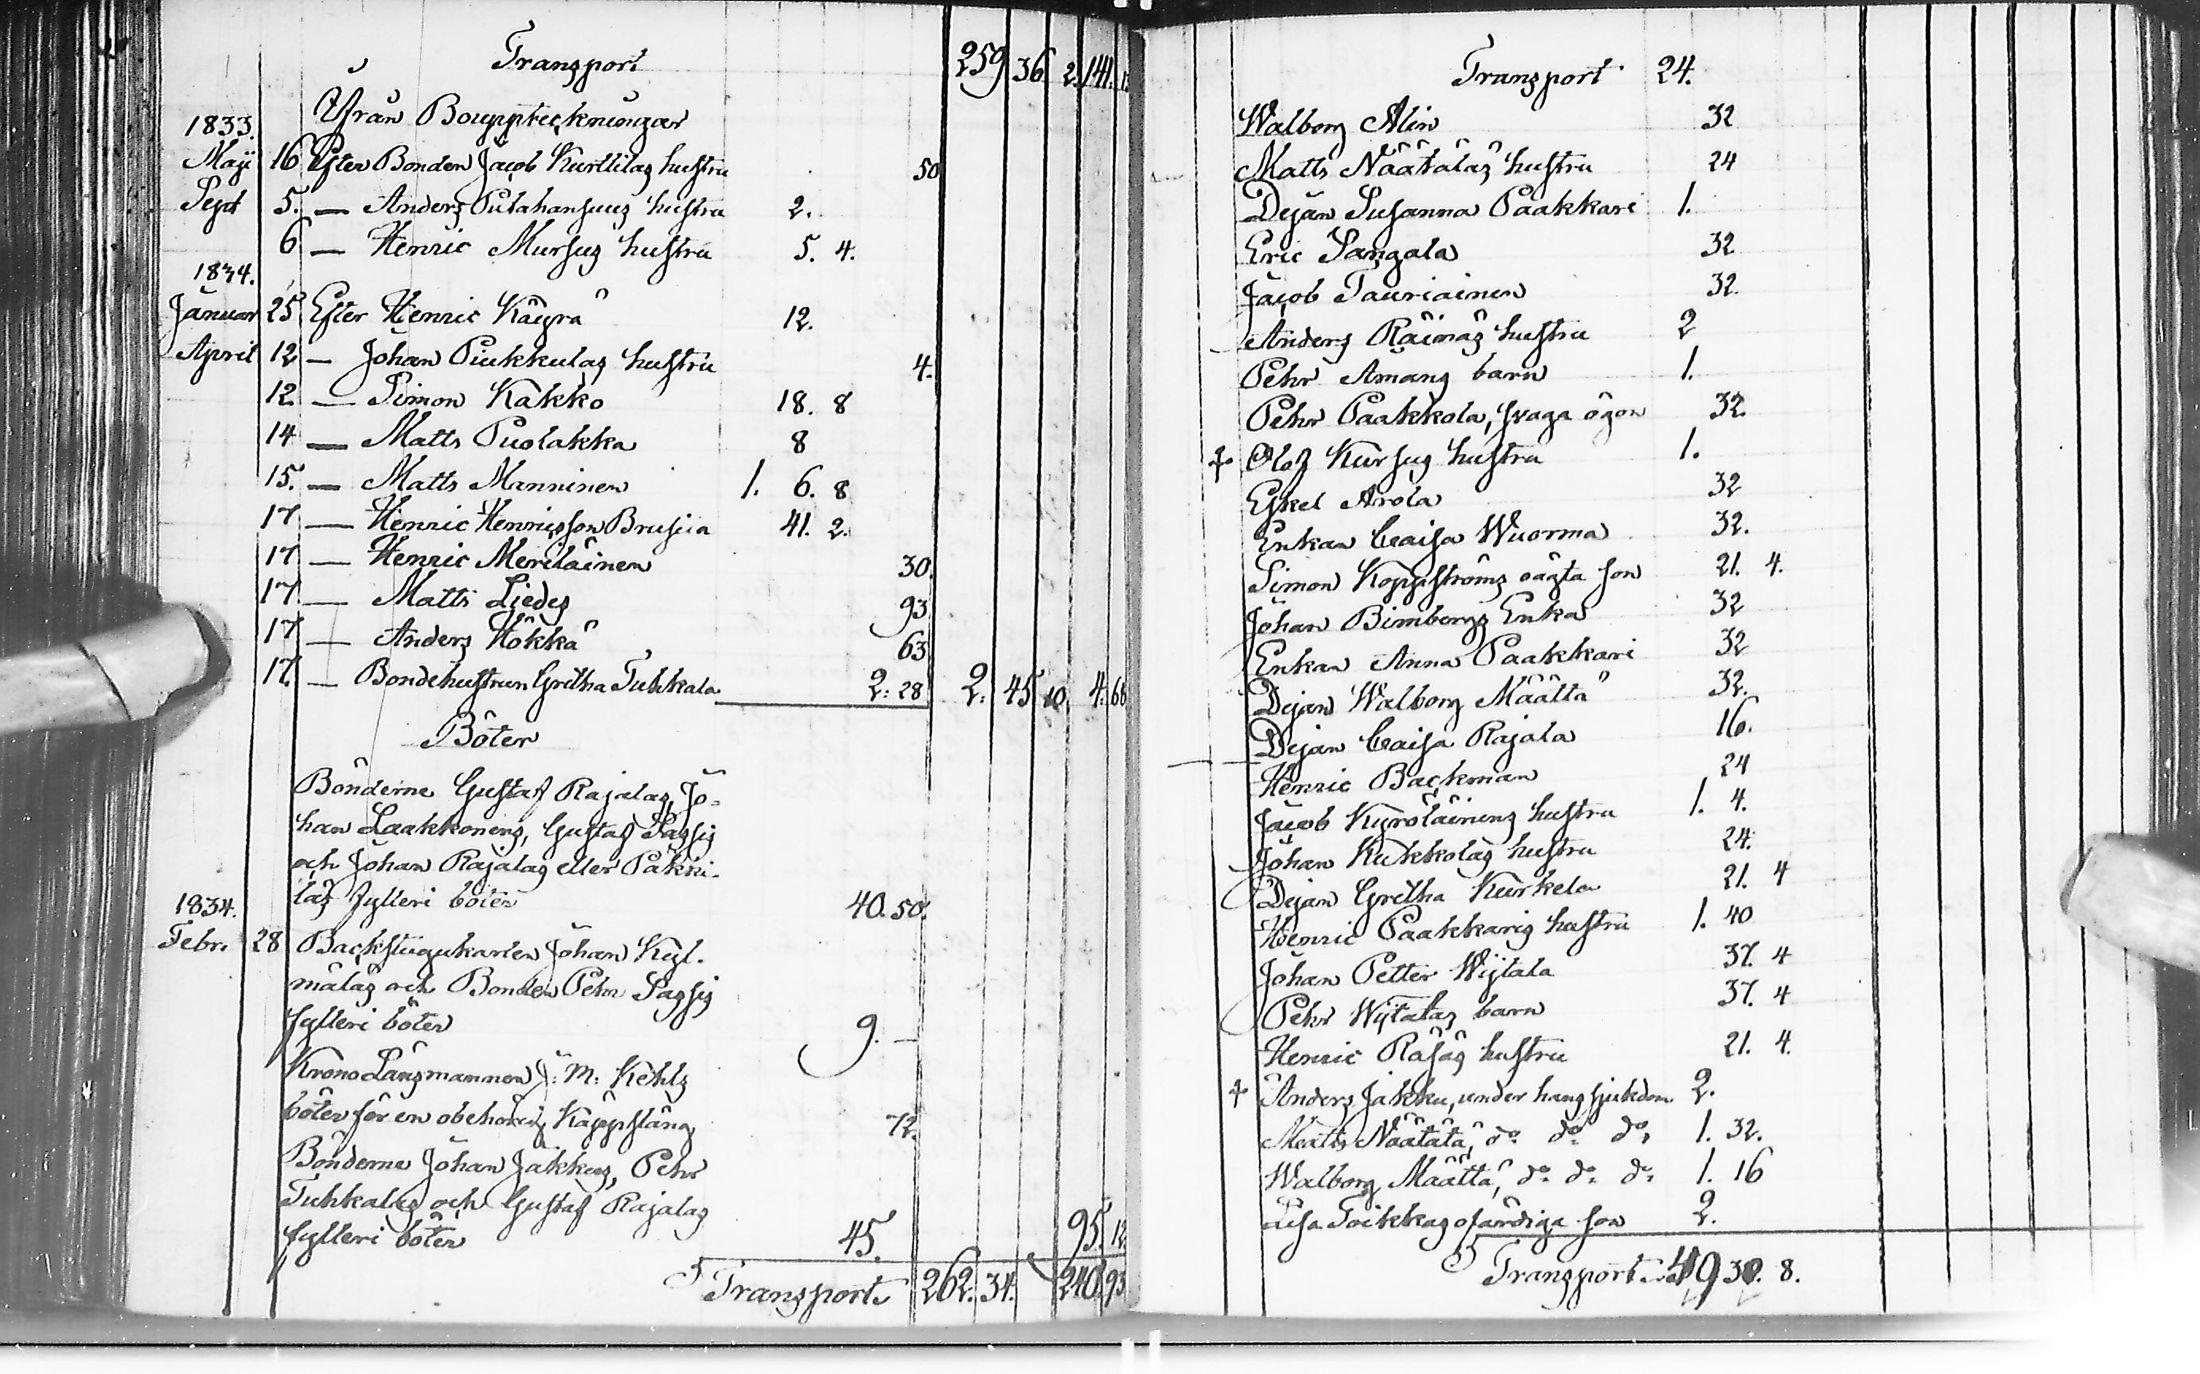 Transport 259 36 2. 141.
Ifrån Bouppteckningar
1833.
Maji 16 Efter Bonden Jacob Kurttilas hustru 50
Sept 5. — Anders Putahansuus hustru 2.
6 — Henric Mursus hustru 5. 4.
1834.
Januar 25 Efter Henric Käyrä 12.
April 12 — Johan Piukkulas hustru 4.
12 — Simon Kakko 18. 8
14 — Matts Puolakka 8
15. — Matts Manninen 1. 6. 8
17 — Henric Henricsson Brusila 41. 2.
17 — Henric Meriläinen 30.
17 — Matts Liedes 93
17 — Anders Hökkä 63
17. — Bondehustrun Gretha Tuhkala 2: 28 2. 45 10. 4. 66
Böter
Bönderne Gustaf Rajalas, Jo-
han Laakkonens, Gustaf Sassis
och Johan Rajalas eller Pakki-
las fylleri böter 40. 50.
1834.
Febr. 28 Backstugukarlen Johan Kyl-
mäläs och Bonden Pehr Sassis
fylleri böter 9. –
Krono Länsmannen J: M: Kehls
böter för en obehörig Käppsläng 72.
Bönderne Johan Jakkus, Pehr
Tuhkalas och Gustaf Rajalas
fylleri böter 45. 95. 12.
Transport 262. 34. 240. 93
Transport 24.
Walborg Alin 32
Matts Näätäläs hustru 24
Dejan Susanna Paakkari 1.
Eric Sangala 32
Jacob Tauriainen 32.
Anders Räinäs hustru 2
Pehr Amans barn 1.
Pehr Paakkola, svaga ögon 32.
Olof Kursus hustru 1.
Eskel Arola 32
Enkan Caisa Wuorma 32.
Simon Koppströms oägta son 21. 4.
Johan Bimbergs Enka 32
Enkan Anna Paakkari 32
Dejan Walborg Määttä 32.
Dejan Caisa Rajala 16.
Henric Backman 24
Jacob Kyröläinens hustru 1. 4.
Johan Kukkolas hustru 24.
Dejan Gretha Kurkela 21. 4
Henric Paakkaris hustru 1. 40
Johan Petter Wijtala 37. 4
Pehr Wijtalas barn 37. 4
Henric Räsäs hustru 21. 4.
Anders Jakku, under hans sjukdom 2.
Matts Näätälä, do do do 1. 32.
Walborg Määttä, do do do 1. 16
Lisa Toikkas ofärdiga son 2.
Transport 49 30. 8.